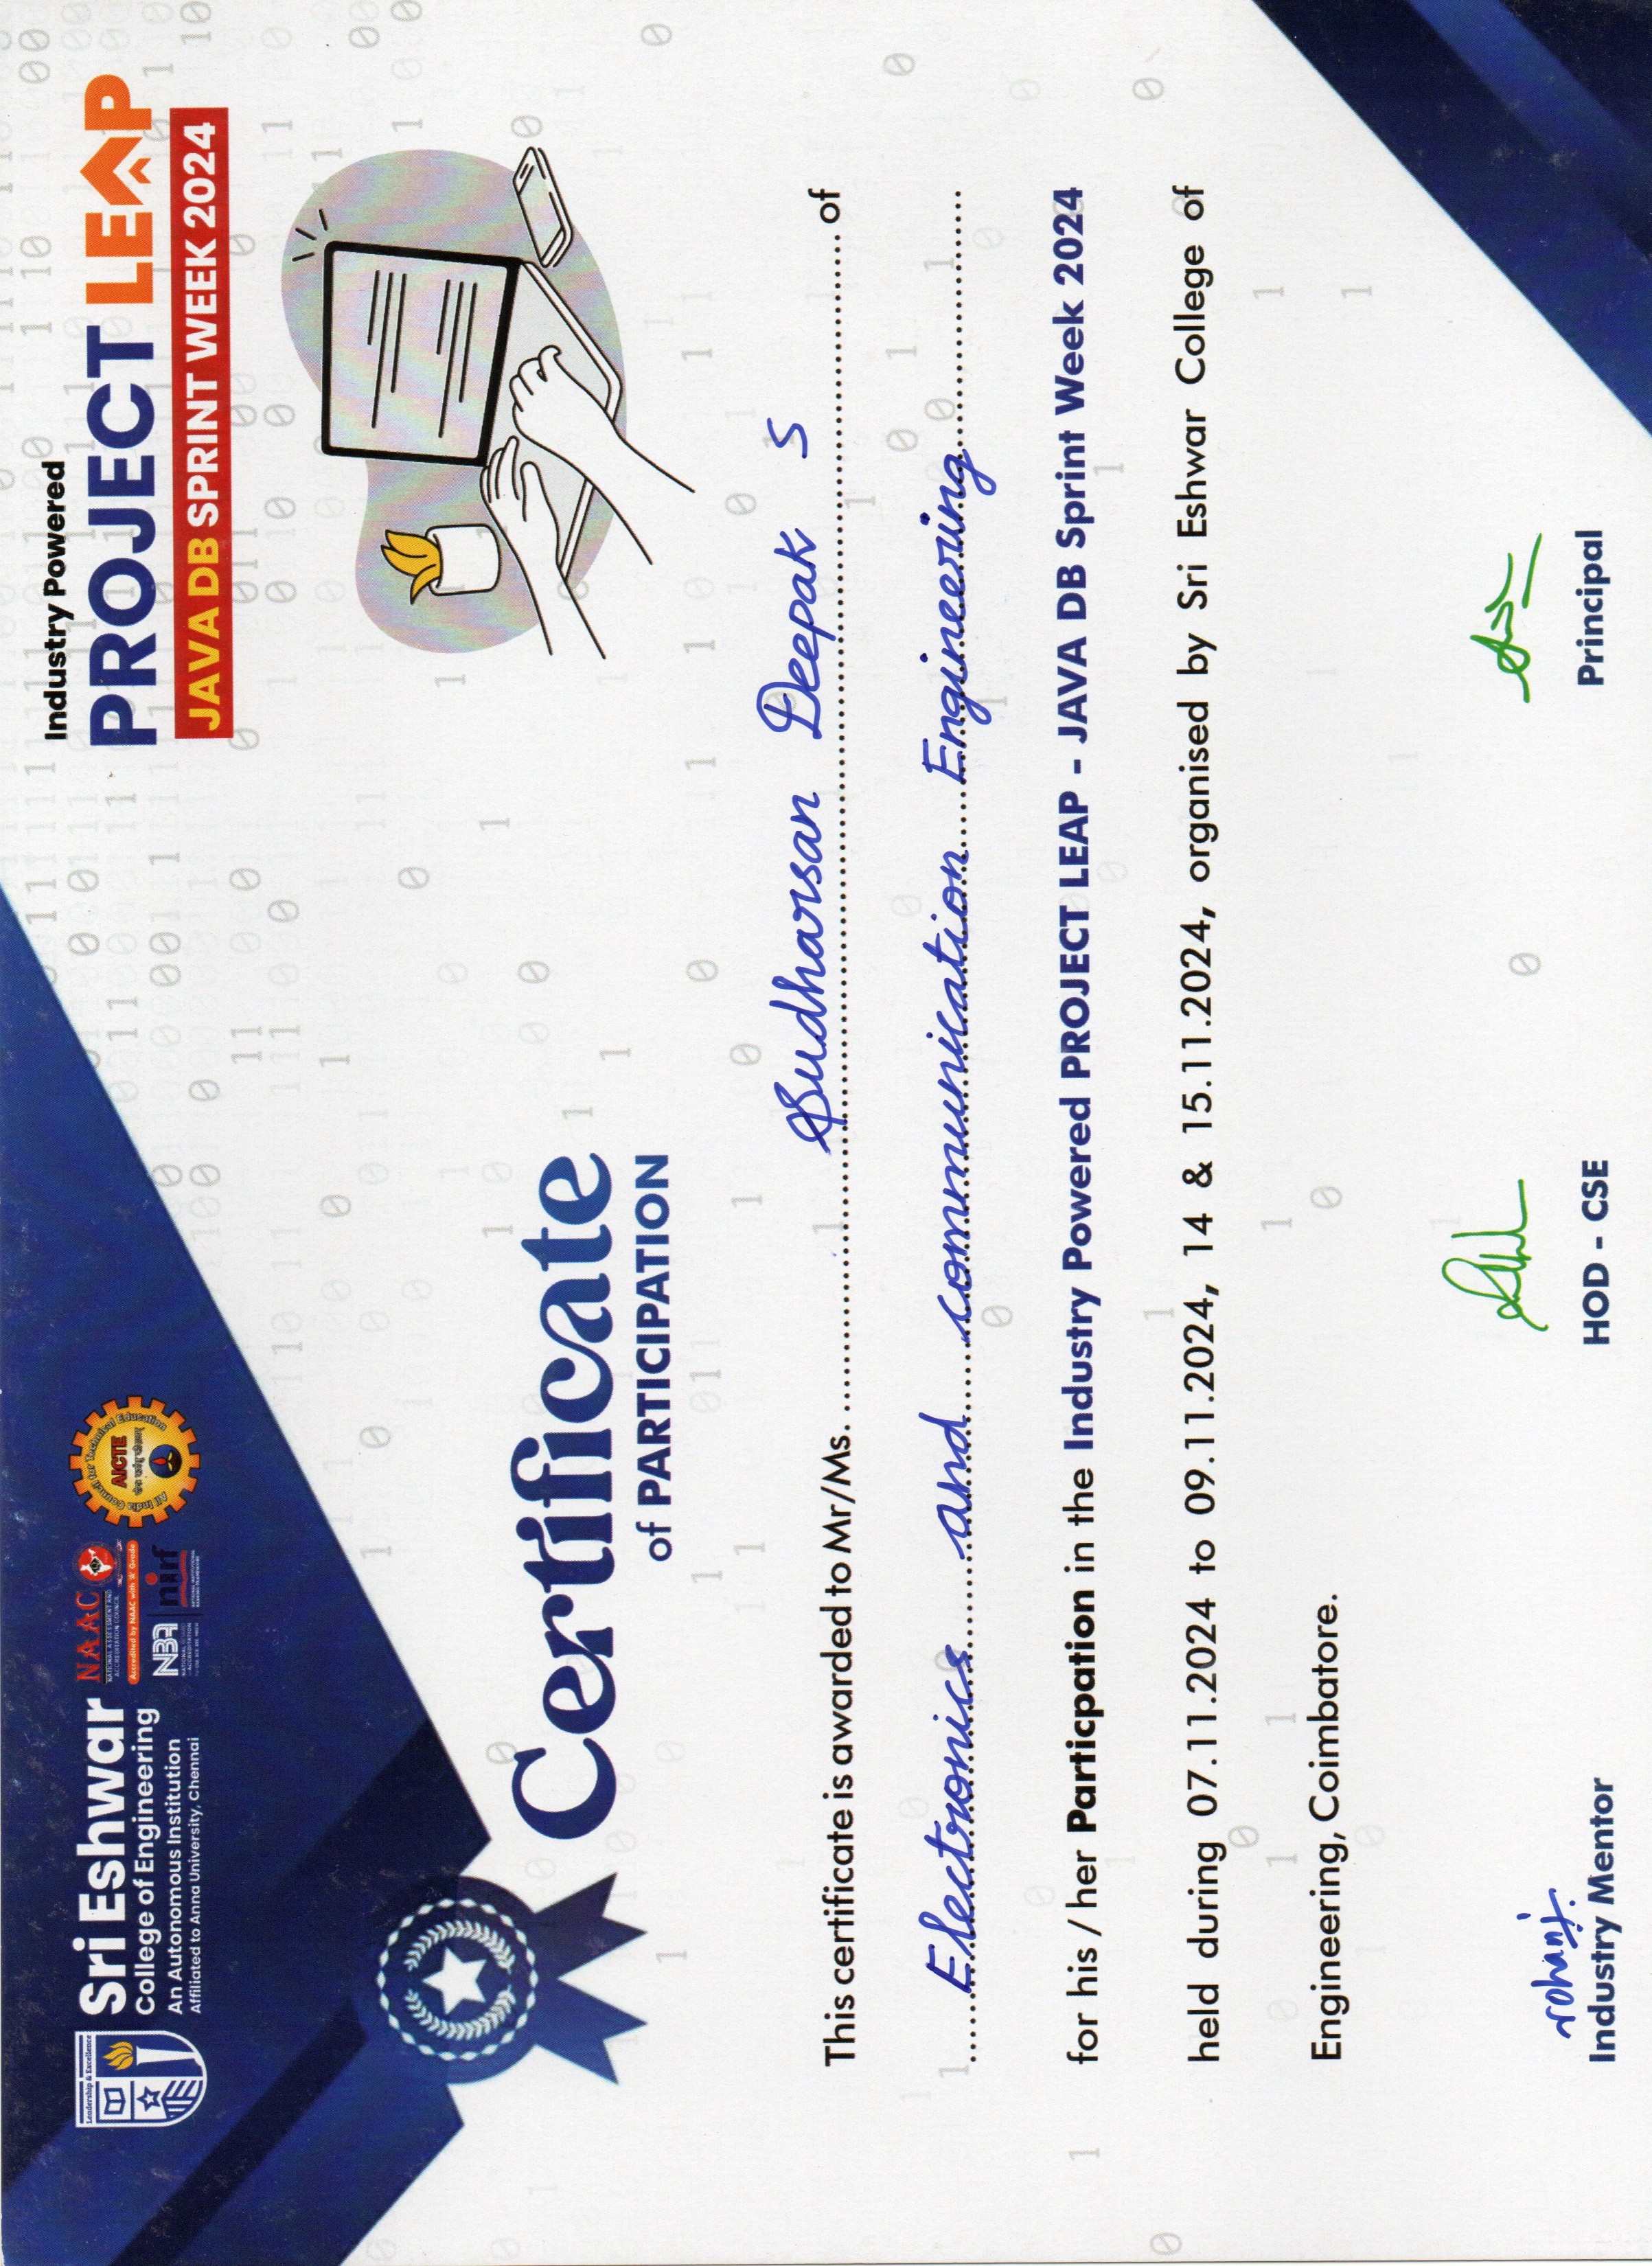 Leadership & Excellence
Sri Eshwar
College of Engineering
An Autonomous Institution
Affiliated to Anna University, Chennai
NAAC
NATIONAL ASSESSMENT AND
ACCREDITATION COUNCIL
Accredited by NAAC with 'A' Grade
NBA
NATIONAL BOARD
of ACCREDITATION
nirf
NATIONAL INSTITUTIONAL
RANKING FRAMEWORK
All India Council for Technical Education
AICTE
Industry Powered
PROJECT LEAP
JAVA DB SPRINT WEEK 2024
Certificate
of PARTICIPATION
This certificate is awarded to Mr/Ms. Sudharsan Deepak S of
Electronics and communication Engineering
for his / her Particpation in the Industry Powered PROJECT LEAP - JAVA DB Sprint Week 2024
held during 07.11.2024 to 09.11.2024, 14 & 15.11.2024, organised by Sri Eshwar College of
Engineering, Coimbatore.
Industry Mentor
HOD - CSE
Principal